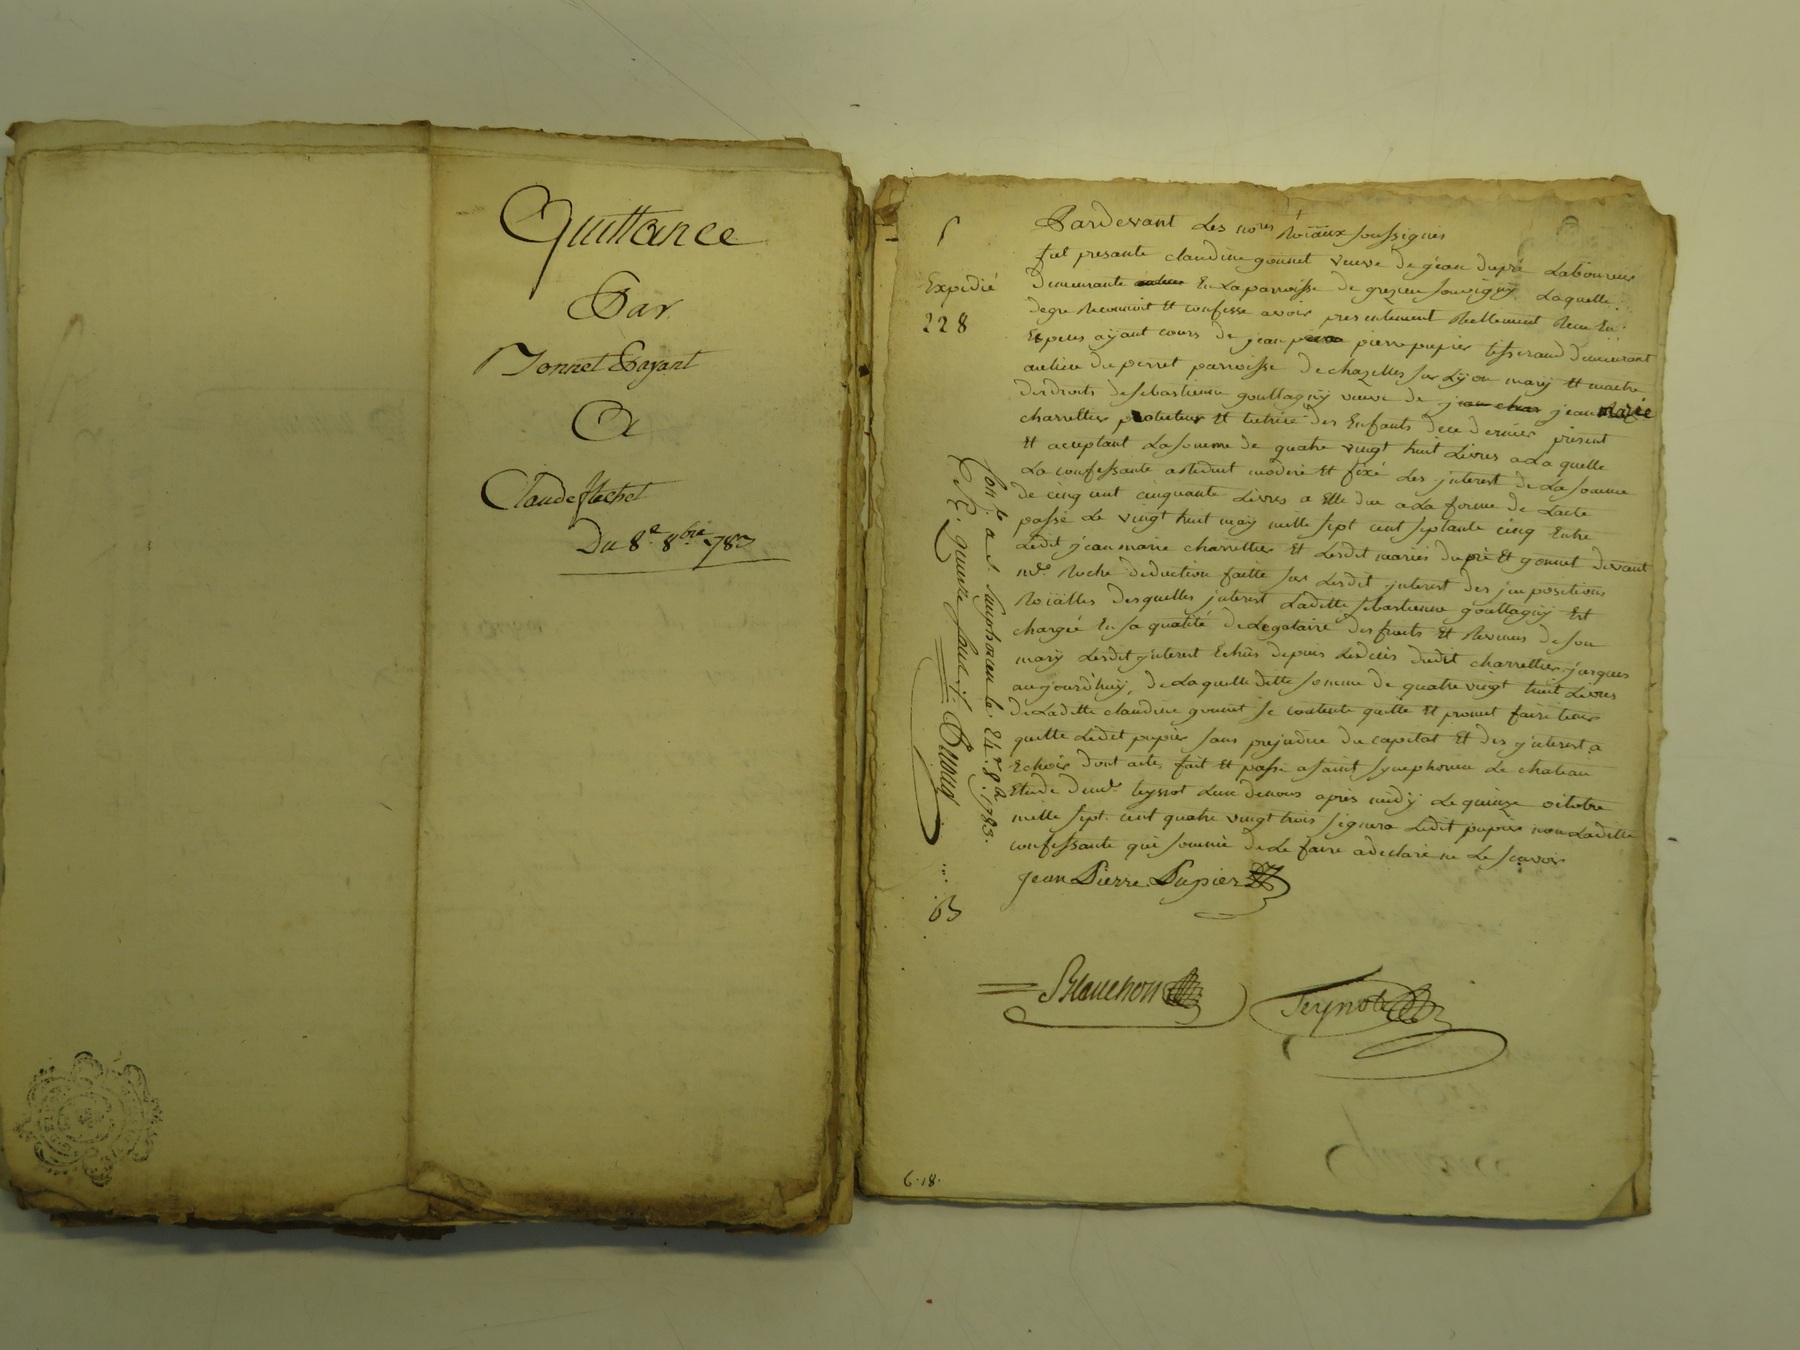 Quittance
Par
Payant
A
Claude flechet
Du 8e 8bre 1783
Expédié
228
Pardevant Les nores Roïaux soussignés
fut presante claudine gonnet veuve de jean dupré Laboureur
demeurante En La parroisse de grezieu souvigny Laquelle
de gre Reconnoit Et confesse avoir presentement Reellement Receu En
Especes aÿant cours de jean pierre pupier tisserand demeurant
au lieu du perret parroisse de chazelles sur Lÿon marÿ Et maitre
des droits de sebastienne goullagnÿ veuve de jean marie
charretier Et tutrice des Enfants de ce dernier present
Et acceptant La somme de quatre vingt huit Livres a La quelle
La confessante a reduit modéré Et fixé Les jnterest de La somme
de cinq cent cinquante Livres a Elle due a La forme de L'acte
passé Le vingt huit may mille sept cent septante cinq Entre
Ledit jean marie charretier Et Lesdit mariés dupré Et gonnet devant
me Roche deduction faitte sur Lesdit jnterest des jmpositions
Roïalles desquelles jnterest Laditte sebastienne goullagnÿ Est
chargée En sa qualité de Legataire des fruits Et Revenus de son
marÿ Lesdit jnterest Echûs depuis Le decès dudit charretier jusques
aujourd'huÿ, de Laquelle ditte somme de quatre vingt huit Livres
de Laditte claudine gonnet se contente quitte Et promet faire tenir
quitte Ledit pupier sans prejudice du capital Et des jnterest a
Echoir dont acte, fait Et passé a saint symphorien Le chateau
Etude de me teynot L'un de nous après midÿ Le quinze octobre
mille sept cent quatre vingt trois signera Ledit pupier non Laditte
confessante qui sommée de Le faire a declaré ne Le scavoir
Jean Pierre Pupier
Blanchon Teynot
Con.lé a St Simphorien le 24. 8bre 1783.
R. quinze sous
63
6.18.